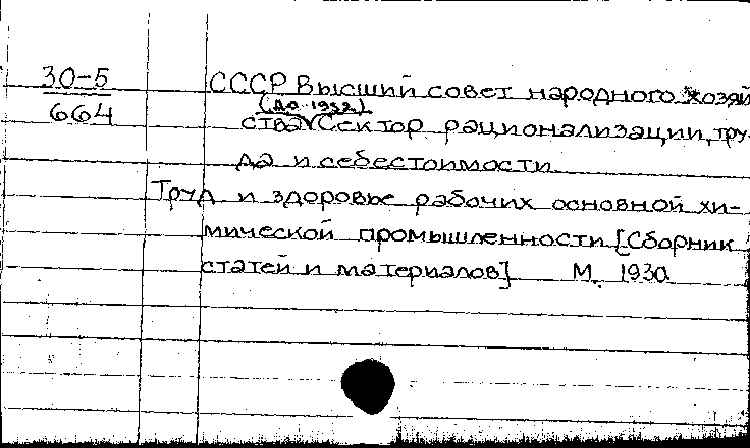 30-5
664
СССР Высший совет народного хозяй
(до 1932)
ства Сектор рационализации, тру-
да и себестоимости.
Труд и здоровье рабочих основной хи-
мической промышленности [Сборник
статей и материалов] М. 1930